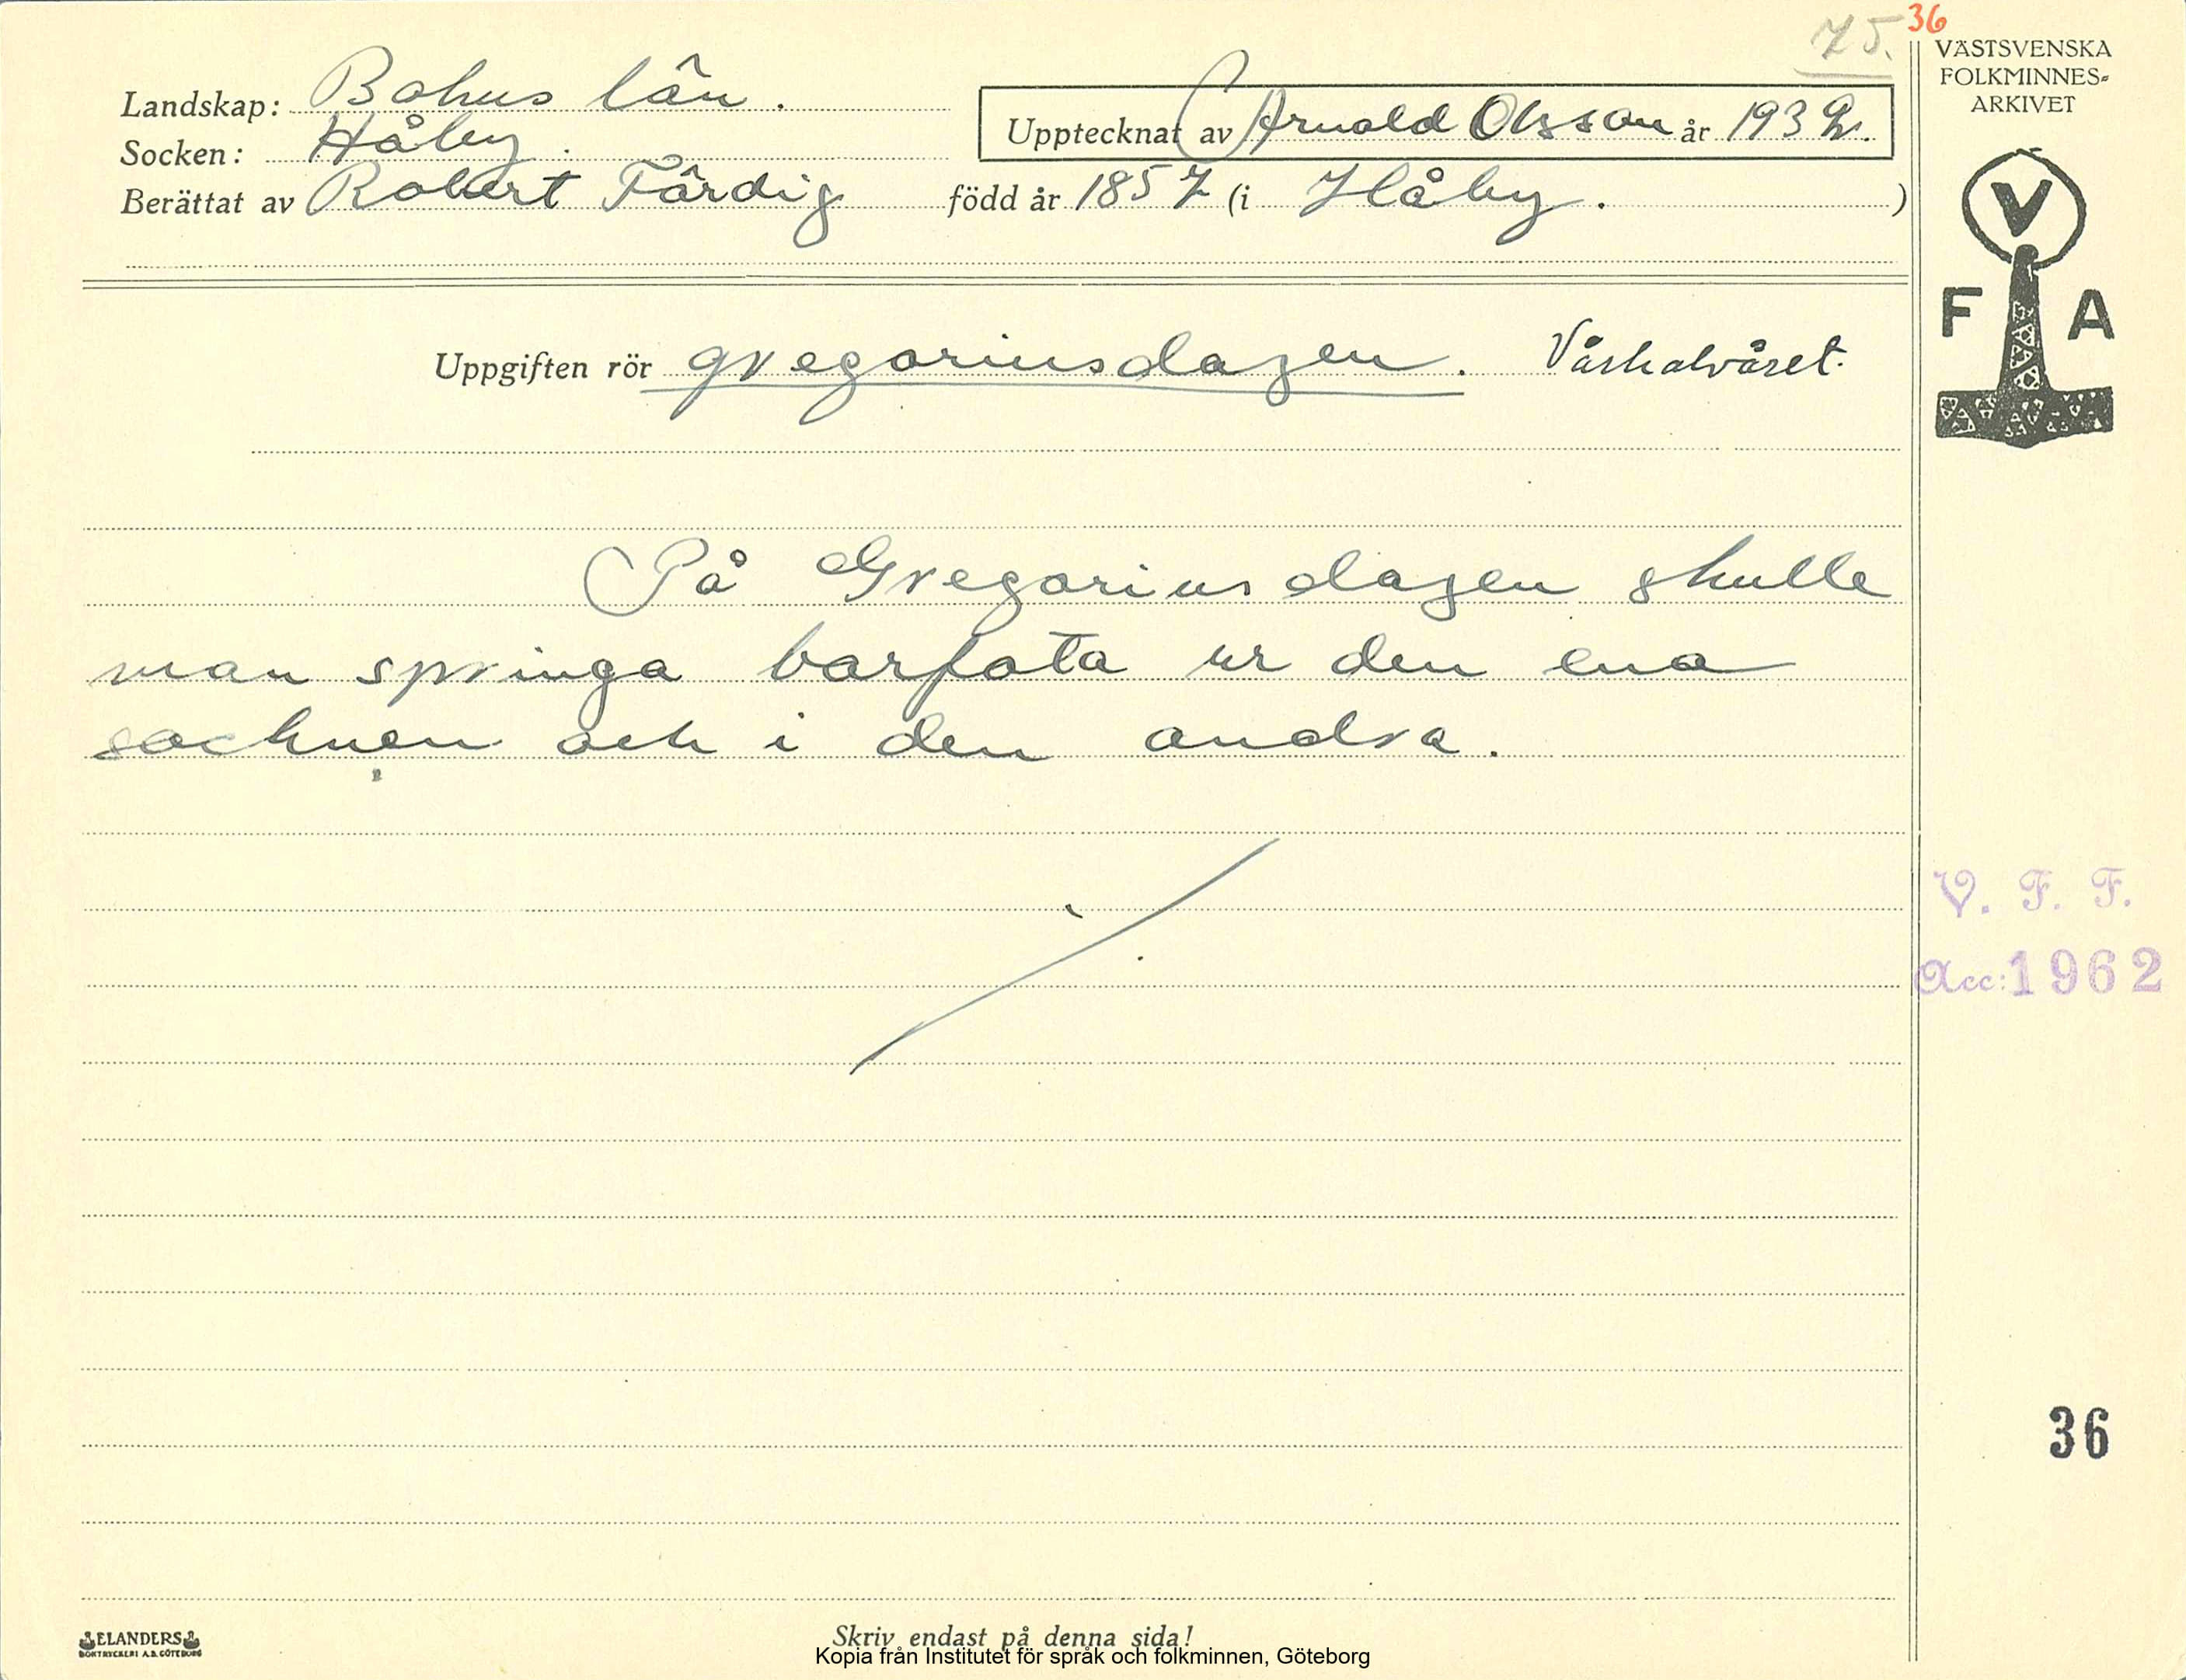 75. 36
VÄSTSVENSKA
FOLKMINNES-
ARKIVET
Landskap: Bohus län.
Upptecknat av Arnold Olsson år 1932.
Socken: Håby.
Berättat av Robert Färdig född år 1857 (i Håby. )
V
F A
Uppgiften rör gregoriusdagen. Vårhalvåret.
På Gregoriusdagen skulle
man springa barfota ur den ena
socknen och i den andra.
V. F. F.
Acc: 1962
36
ELANDERS
BOKTRYCKERI A.B. GÖTEBORG
Skriv endast på denna sida!
Kopia från Institutet för språk och folkminnen, Göteborg